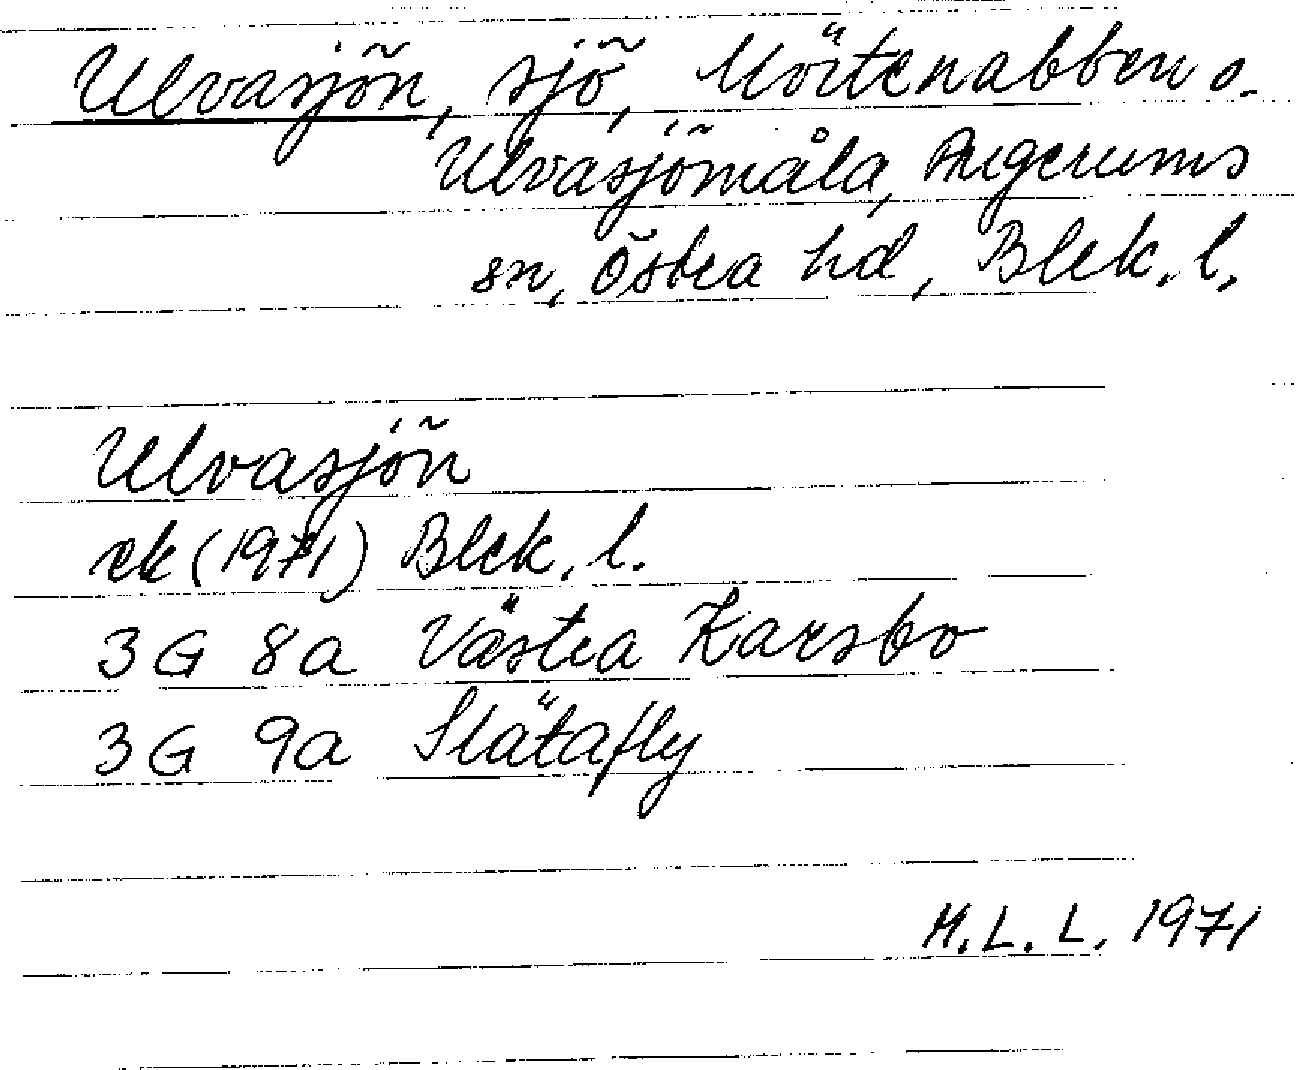 Ulvasjön, sjö, Mörtenabben o.
Ulvasjömåla, Augerums
sn, Östra hd, Blek. l.
Ulvasjön
ek (1971) Blek. l.
3G 8a Västra Karsbo
3G 9a Slätafly
M.L.L. 1971